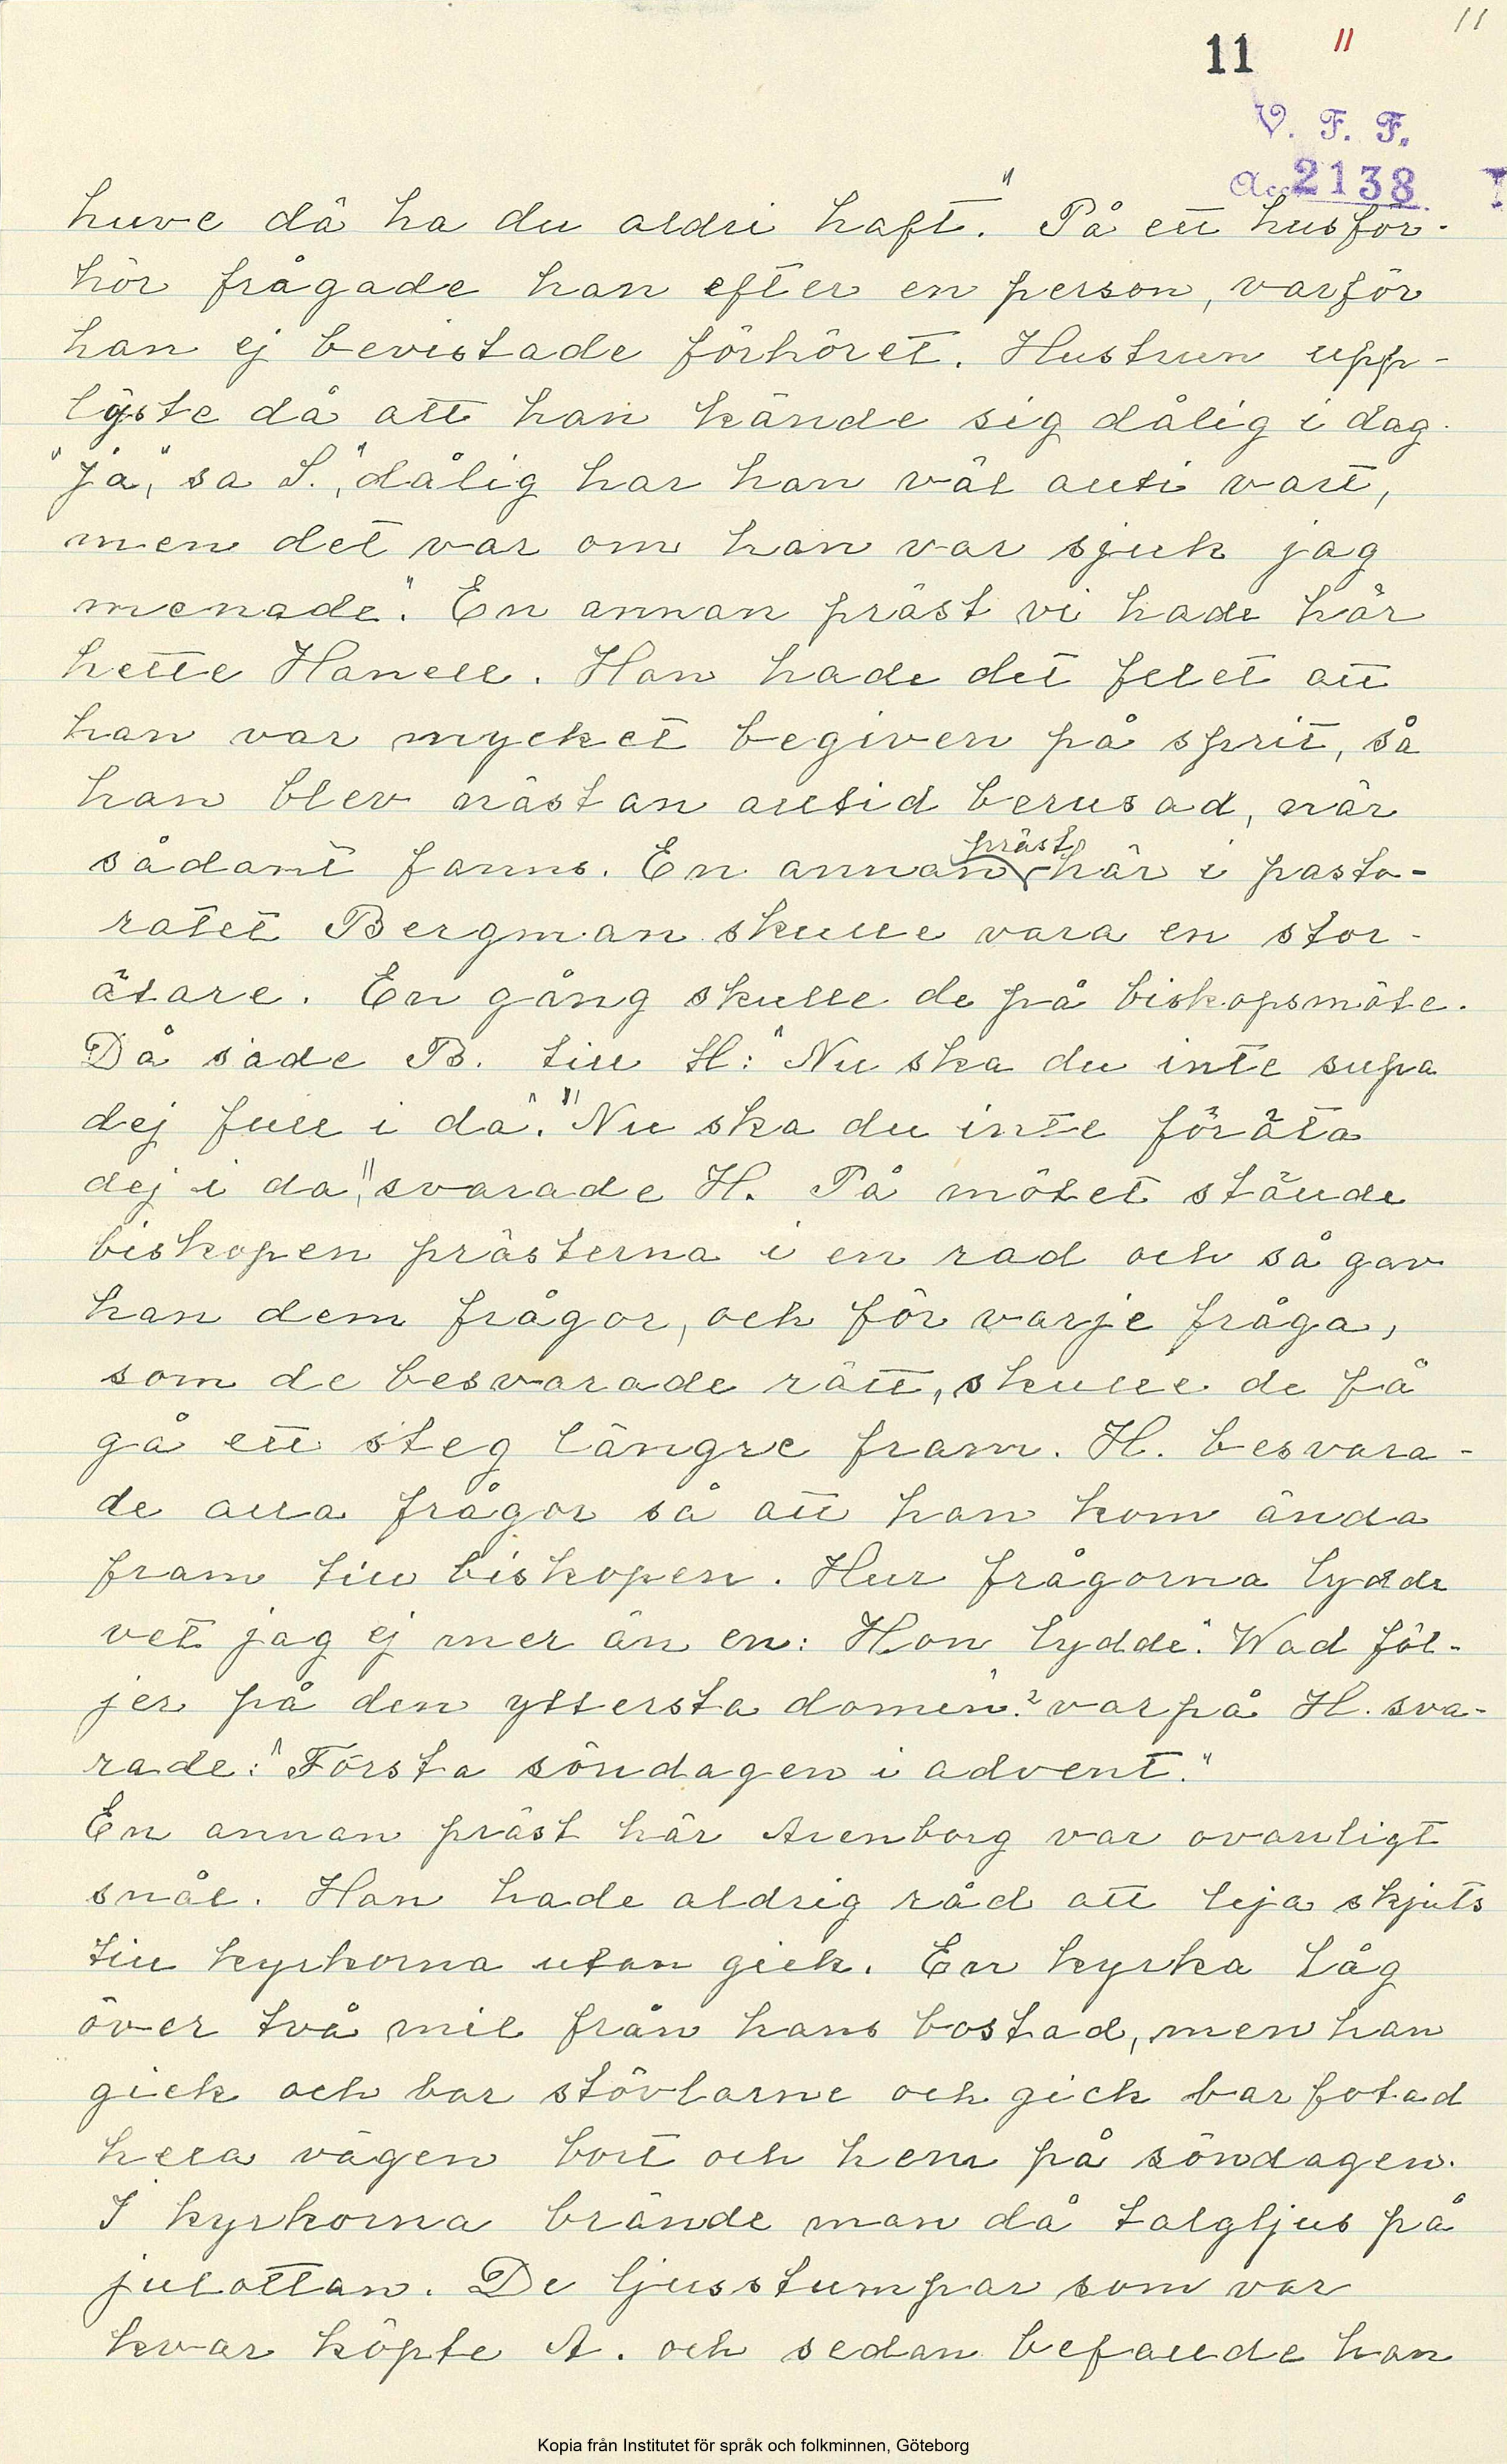 11
11 "
V. F. F.
Acc 2138 I
huve då ha du aldri haft." På ett husför-
hör frågade han efter en person, varför
han ej bevistade förhöret. Hustrun upp-
lyste då att han kände sig dålig i dag.
"Ja," sa S., "dålig har han väl alltí vart,
men det var om han var sjuk jag
menade". En annan präst vi hade här
hette Hanell. Han hade det felet att
han var mycket begiven på sprit, så
han blev nästan alltid berusad, när
sådant fanns. En annan präst här i pasto-
ratet Bergman skulle vara en stor-
ätare. En gång skulle de på biskopsmöte.
Då sade B. till H: "Nu ska du inte supa
dej full i da". "Nu ska du inte föräta
dej i da", svarade H. På mötet ställde
biskopen prästerna i en rad och så gav
han dem frågor, och för varje fråga,
som de besvarade rätt, skulle de få
gå ett steg längre fram. H. besvara-
de alla frågor så att han kom ända
fram till biskopen. Hur frågorna lydde
vet jag ej mer än en: Hon lydde: "Wad föl-
jer på den yttersta domen"? varpå H. sva-
rade: "Första söndagen i advent."
En annan präst här Arenborg var ovanligt
snål. Han hade aldrig råd att leja skjuts
till kyrkorna utan gick. En kyrka låg
över två mil från hans bostad, men han
gick och bar stövlarne och gick barfotad
hela vägen bort och hem på söndagen.
I kyrkorna brände man då talgljus på
julottan. De ljusstumpar som var
kvar köpte A. och sedan befallde han
Kopia från Institutet för språk och folkminnen, Göteborg